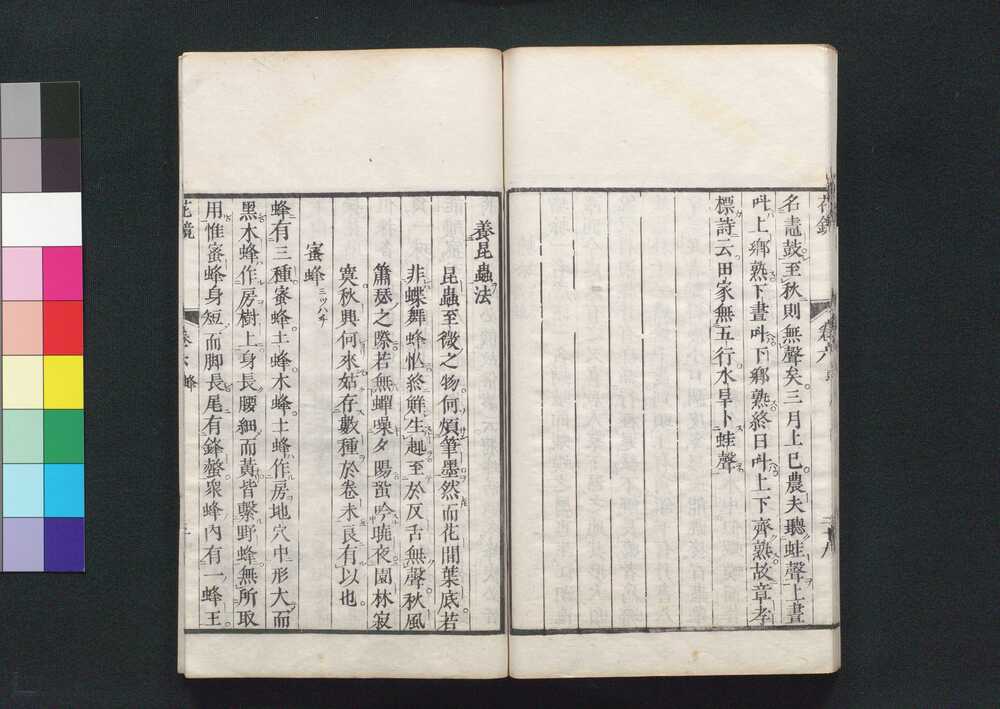 花鏡
卷六
二十八
名鼃鼓至秋則無聲矣三月上巳農夫聽蛙聲上晝
叫上鄉熟下晝叫下鄉熟終日叫上下齊熟故章孝
標詩云田家無五行水旱卜蛙聲
養昆蟲法
昆蟲至微之物何煩筆墨然而花間葉底若
非蝶舞蜂忙終鮮生趣至於反舌無聲秋風
蕭瑟之際若無蟬噪夕陽蛩吟曉夜園林寂
寞秋興何來姑存數種於卷末良有以也
蜜蜂 ミツハチ
蜂有三種蜜蜂土蜂木蜂土蜂作房地穴中形大而
黑木蜂作房樹上身長腰細而黃皆繫野蜂無所取
用惟蜜蜂身短而脚長尾有鋒螫衆蜂內有一蜂王
花鏡
卷六 蜂